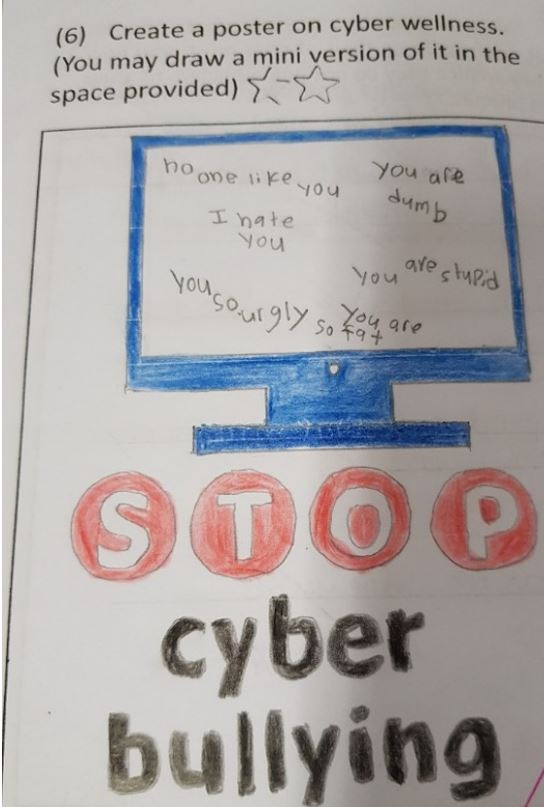 (6) Create a poster on cyber wellness.
(You may draw a mini version of it in the
space provided)
no one like you
You are
dumb
I hate
you
You are stupid
You so urgly
You are
so fat
STOP
cyber
bullying